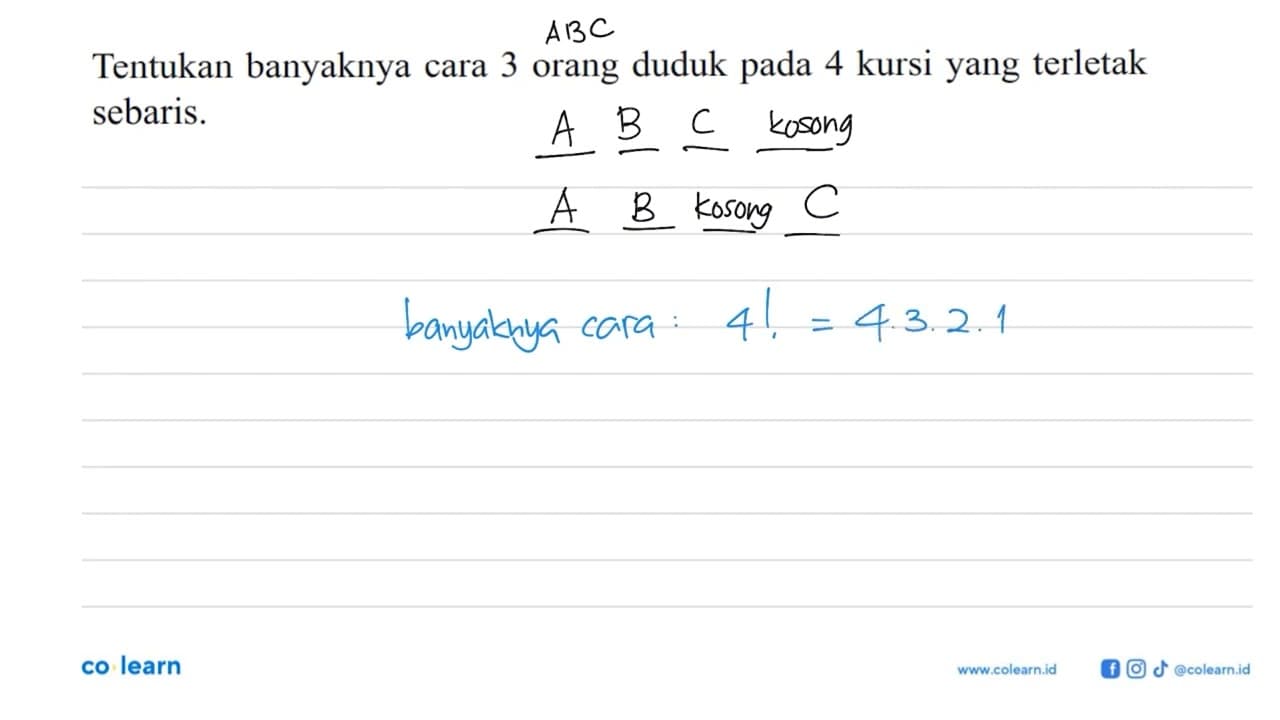 ABC
Tentukan banyaknya cara 3 orang duduk pada 4 kursi yang terletak
sebaris.
A B C kosong
A B kosong C
banyaknya cara : 4! = 4.3.2.1
co·learn
www.colearn.id @colearn.id